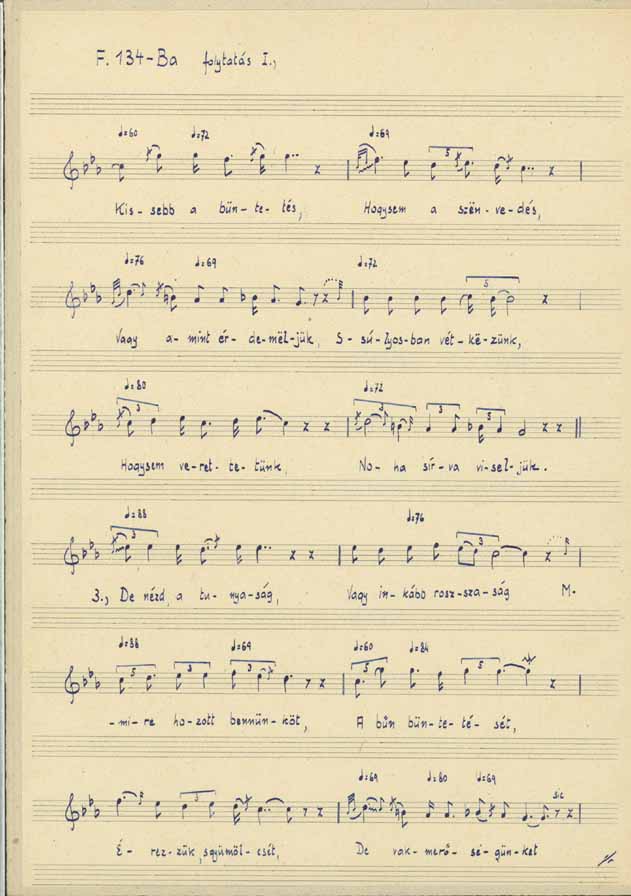 F. 134-Ba folytatás I.,
♩=60 ♩=72 ♩=69
5
Kis- sebb a bün- te- tés, Hogysem a szën- ve- dés,
♩=76 ♩=69 ♩=72
5
Vagy a- mint ér- de- mël- jük, S- sú- lyos- ban vét- kë- zünk,
♩=80 ♩=72
3 3 3 5
Hogysem ve- ret- te- tünk, No- ha sír- va vi- sel- jük.
♩=88 ♩=76
3 3
3., De nézd, a tu- nya- ság, Vagy in- kább rosz- sza- ság M-
♩=88 ♩=69 ♩=60 ♩=84
5 3 3 5 3
-mi- re ho- zott bennün- köt, A bűn bün- te- té- sét,
♩=69 ♩=80 ♩=69
3 sic
É- rez- zük, sgyümöl- csét, De vak- merő- sé- günket